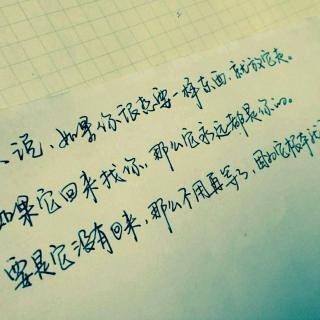 说，如果你很想要一样东西，就放它走。
如果它回来找你，那么它永远都是你的。
要是它没有回来，那么不用再等了，因为它根本